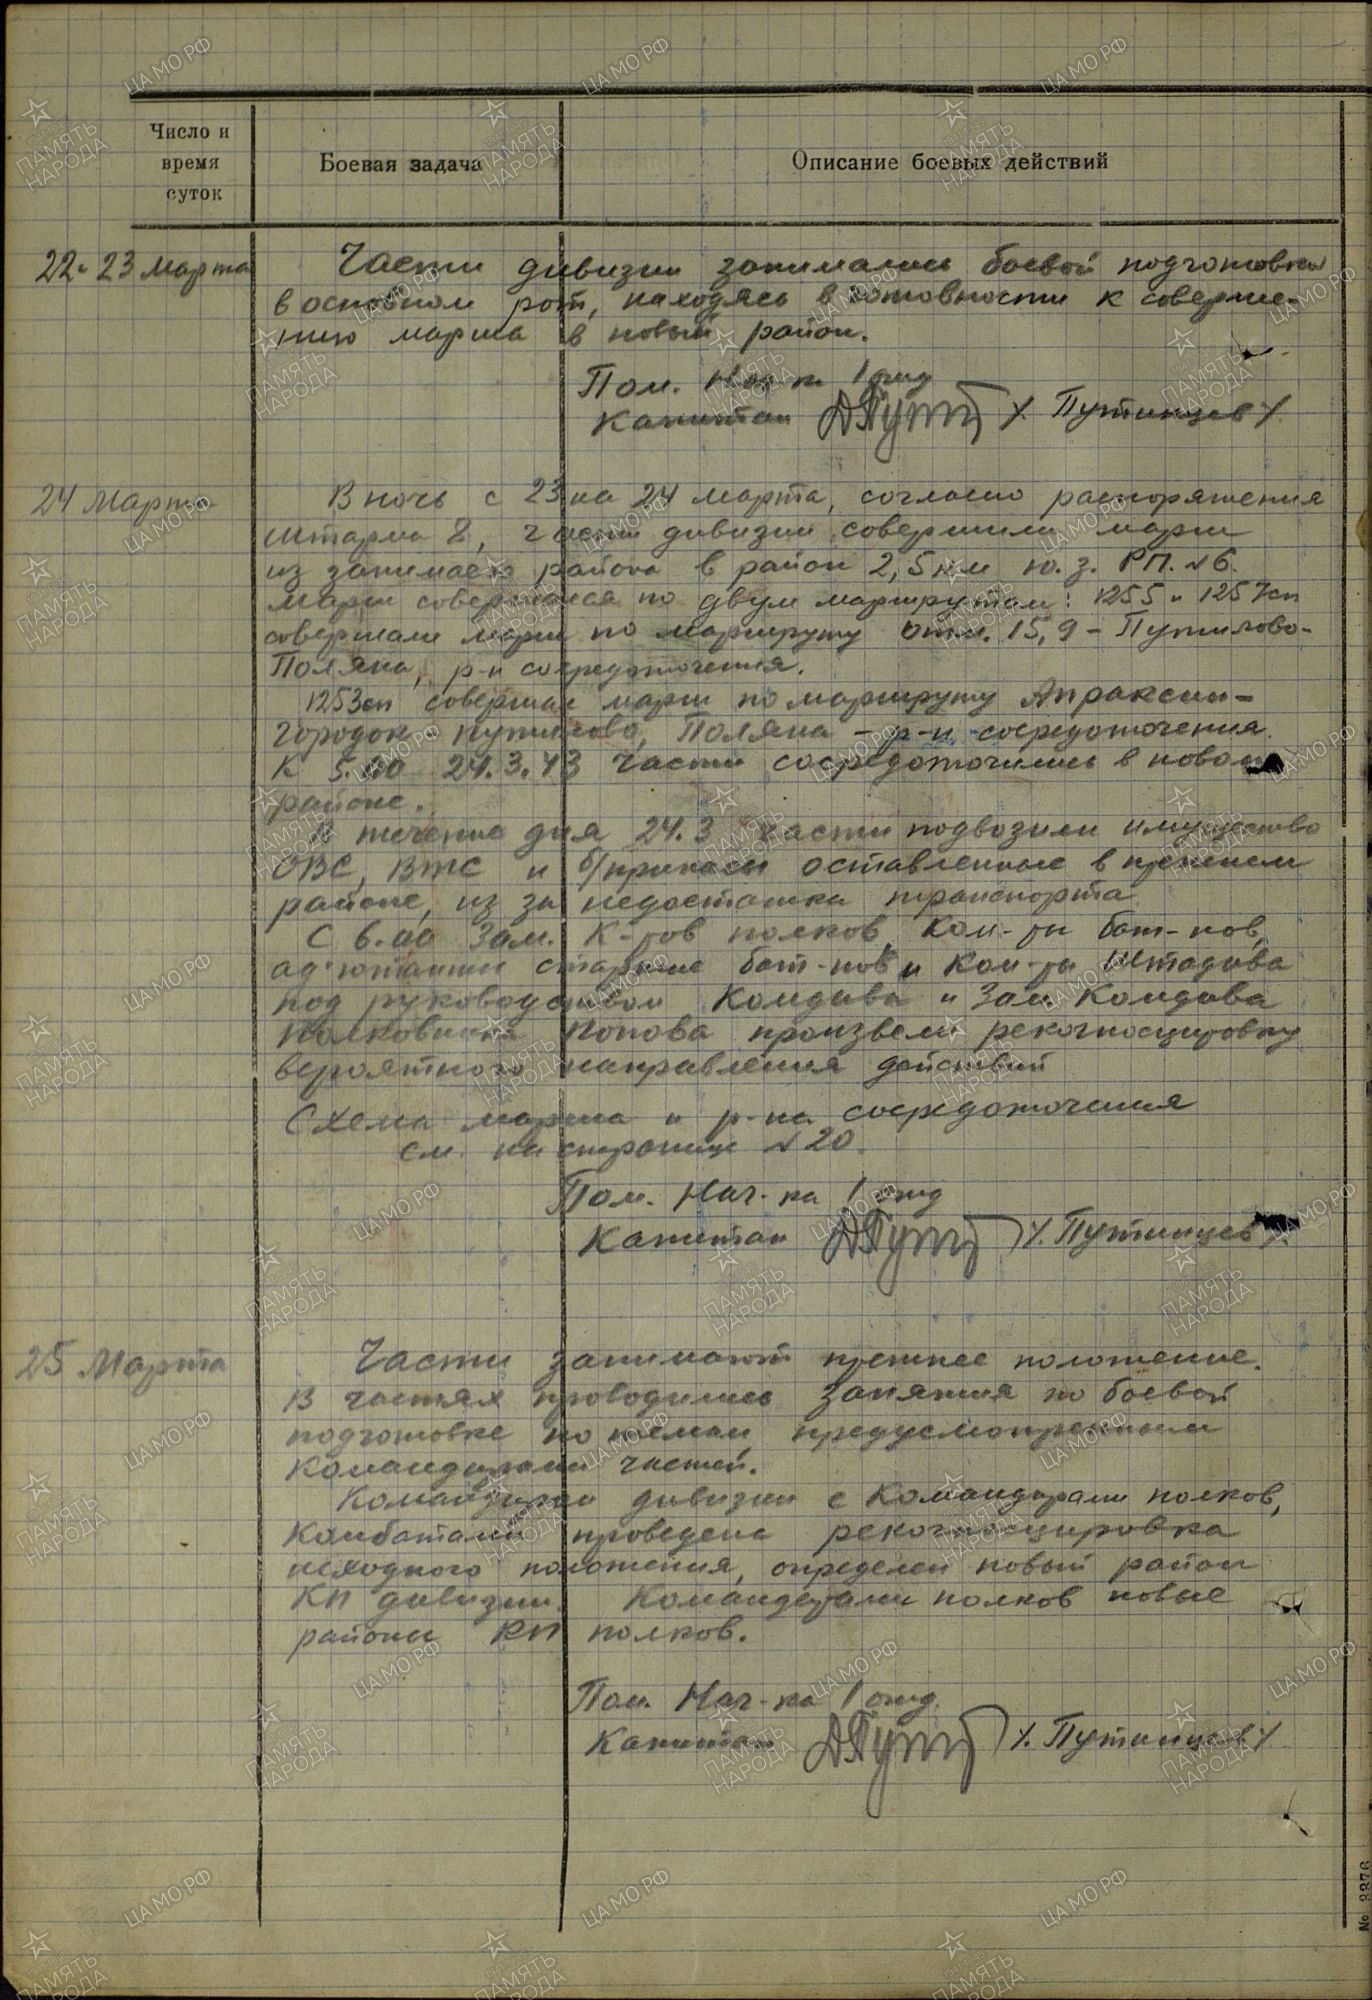 Число и
время
суток
Боевая задача
Описание боевых действий
22-23 Марта
Части дивизии занимались боевой подготовкой
в основном рот, находясь в готовности к соверше-
нию марша в новый район.
Пом. Нач-ка 1 отд
Капитан Путинцев
24 Марта
В ночь с 23 на 24 марта, согласно распоряжения
штарма 8, части дивизии совершили марш
из занимаего района в район 2,5 км ю.з. РП. №6.
Марш совершался по двум маршрутам: 1255 и 1257сп
совершали марш по маршруту отм. 15,9 - Путилово-
Поляна, р-н сосредоточения.
1253сп совершал марш по маршруту Апраксин-
Городок, Путилово, Поляна - р-н сосредоточения.
К 5.00 24.3.43 части сосредоточились в новом
районе.
В течение дня 24.3 части подвозили имущество
ОВС, ВТС и б/припасы оставленные в прежнем
районе, из за недостатка транспорта
С 6.00 Зам. К-ров полков, Ком-ры бат-нов,
ад'ютанты старшие бат-нов и Ком-ры Штадива
под руководством Комдива и Зам. Комдива
полковника Попова произвели рекогносцировку
вероятного направления действий
Схема марша и р-на сосредоточения
см. на странице №20.
Пом. Нач-ка 1 отд
Капитан Путинцев
25 Марта
Части занимают прежнее положение.
В частях проводились занятия по боевой
подготовке по темам, предусмотренным
командирами частей.
Командиром дивизии с Командирами полков,
Комбатами проведена рекогносцировка
исходного положения, определен новый район
КП дивизии. Командирами полков новые
районы КП полков.
Пом. Нач-ка 1 отд.
Капитан Путинцев
№ 3376
ЦА МО РФ
ПАМЯТЬ НАРОДА